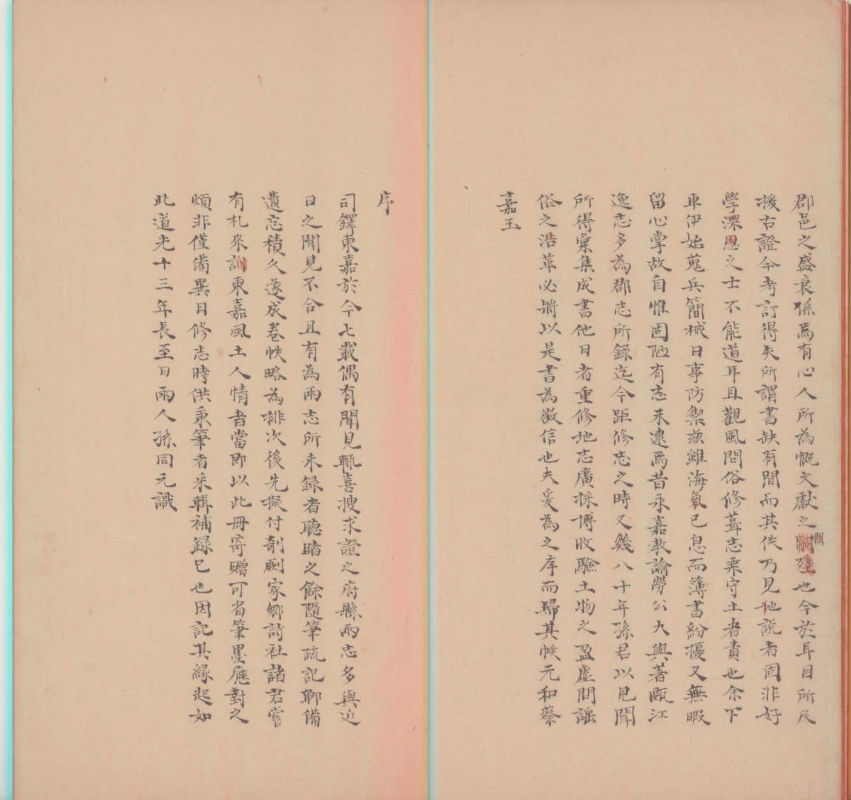 郡邑之盛衰係焉有心人所為慨文獻之闕墜也今於耳目所及
援古證今考訂得失所謂書缺有間而其佚乃見他說者固非好
學深思之士不能道耳且觀風問俗修葺志乘守土者責也余下
車伊始蒐兵簡械日事防禦茲雖海氛已息而簿書紛擾又無暇
留心掌故自惟固陋有志未逮焉昔永嘉教諭勞公大輿著甌江
逸志多為郡志所錄迄今距修志之時又幾八十年孫君以見聞
所得彙集成書他日者重修地志廣採博收驗土物之盈虛問謠
俗之沿革必將以是書為徵信也夫爰為之序而歸其帙元和蔡
嘉玉
序
司鐸東嘉於今七載偶有聞見輒喜搜求證之府縣兩志多與近
日之聞見不合且有為兩志所未録者聽睹之餘隨筆疏記聊備
遺忘積久遂成卷帙略為排次後先擬付剞劂家鄉詩社諸君嘗
有札來詢東嘉風土人情者當即以此冊寄贈可省筆墨應對之
煩非僅備異日修志時供秉筆者采輯補録已也因記其緣起如
此道光十三年長至日雨人孫同元識